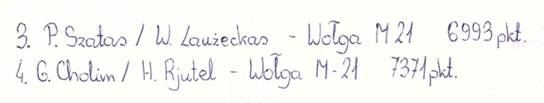 3. P. Szatas / W. Laużeckas - Wołga M 21 6993 pkt.
4. G. Cholim / H. Rjutel - Wołga M-21 7371 pkt.